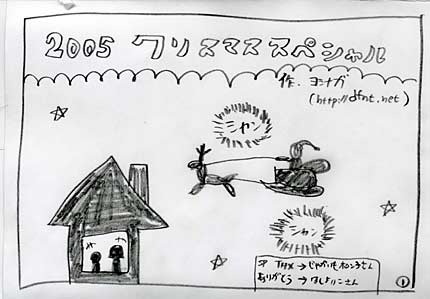 2005 クリスマススペシャル
作. ヨシナガ
(http://dfnt.net)
シャン
シャン
THX → じゃがいもホンチさん
ありがとう → はしよりこさん
①